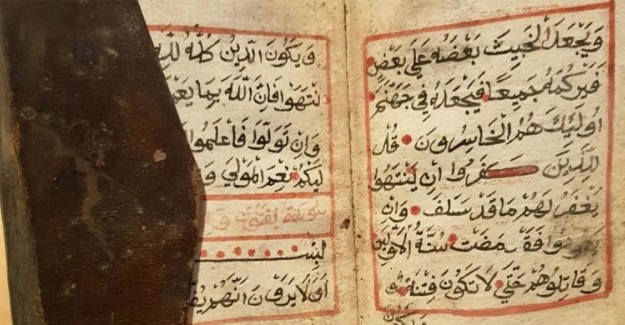 وَيَجْعَلَ الْخَبِيثَ بَعْضَهُ عَلَى بَعْضٍ
فَيَرْكُمَهُ جَمِيعًا فَيَجْعَلَهُ فِي جَهَنَّمَ
اُولَئِكَ هُمُ الْخَاسِرُونَ قُلْ
لِلَّذِينَ كَفَرُوا اَنْ يَنْتَهُوا
يُغْفَرْ لَهُمْ مَا قَدْ سَلَفَ وَاِنْ
فَقَدْ مَضَتْ سُنَّةُ الْاَوَّلِينَ
وَقَاتِلُوهُمْ حَتَّى لَا تَكُونَ فِتْنَةٌ و
وَيَكُونَ الدِّينُ كُلُّهُ لِلَّهِ
نْتَهَوْا فَاِنَّ اللَّهَ بِمَا يَعْمَ
وَاِنْ تَوَلَّوْا فَاعْلَمُوا
لَيكُمْ نِعْمَ الْمَوْلَى وَ
سورة
بس
اَوَلَا يَرَوْنَ اَنَّهُمْ يُفْ